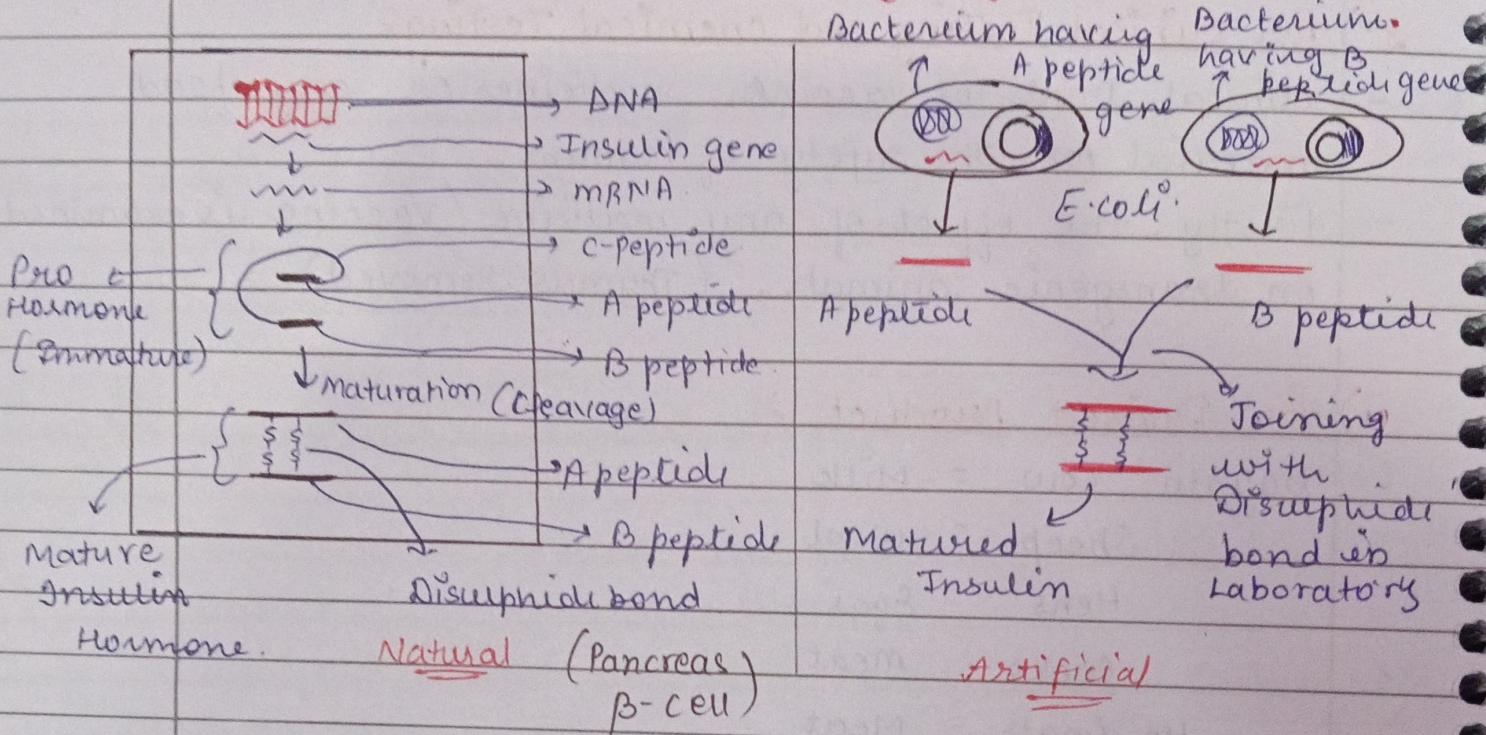 DNA
Insulin gene
mRNA
C-peptide
Pro
Hormone
(Immature)
A peptide
B peptide
Maturation (Cleavage)
A peptide
B peptide
Mature
Insulin
Hormone.
Disulphide bond
Natural (Pancreas
β-cell)
Bacterium having
A peptide
gene
Bacterium
having B
peptide gene
E.coli.
A peptide
B peptide
Joining
with
Disulphide
bond in
Laboratory
Matured
Insulin
Artificial